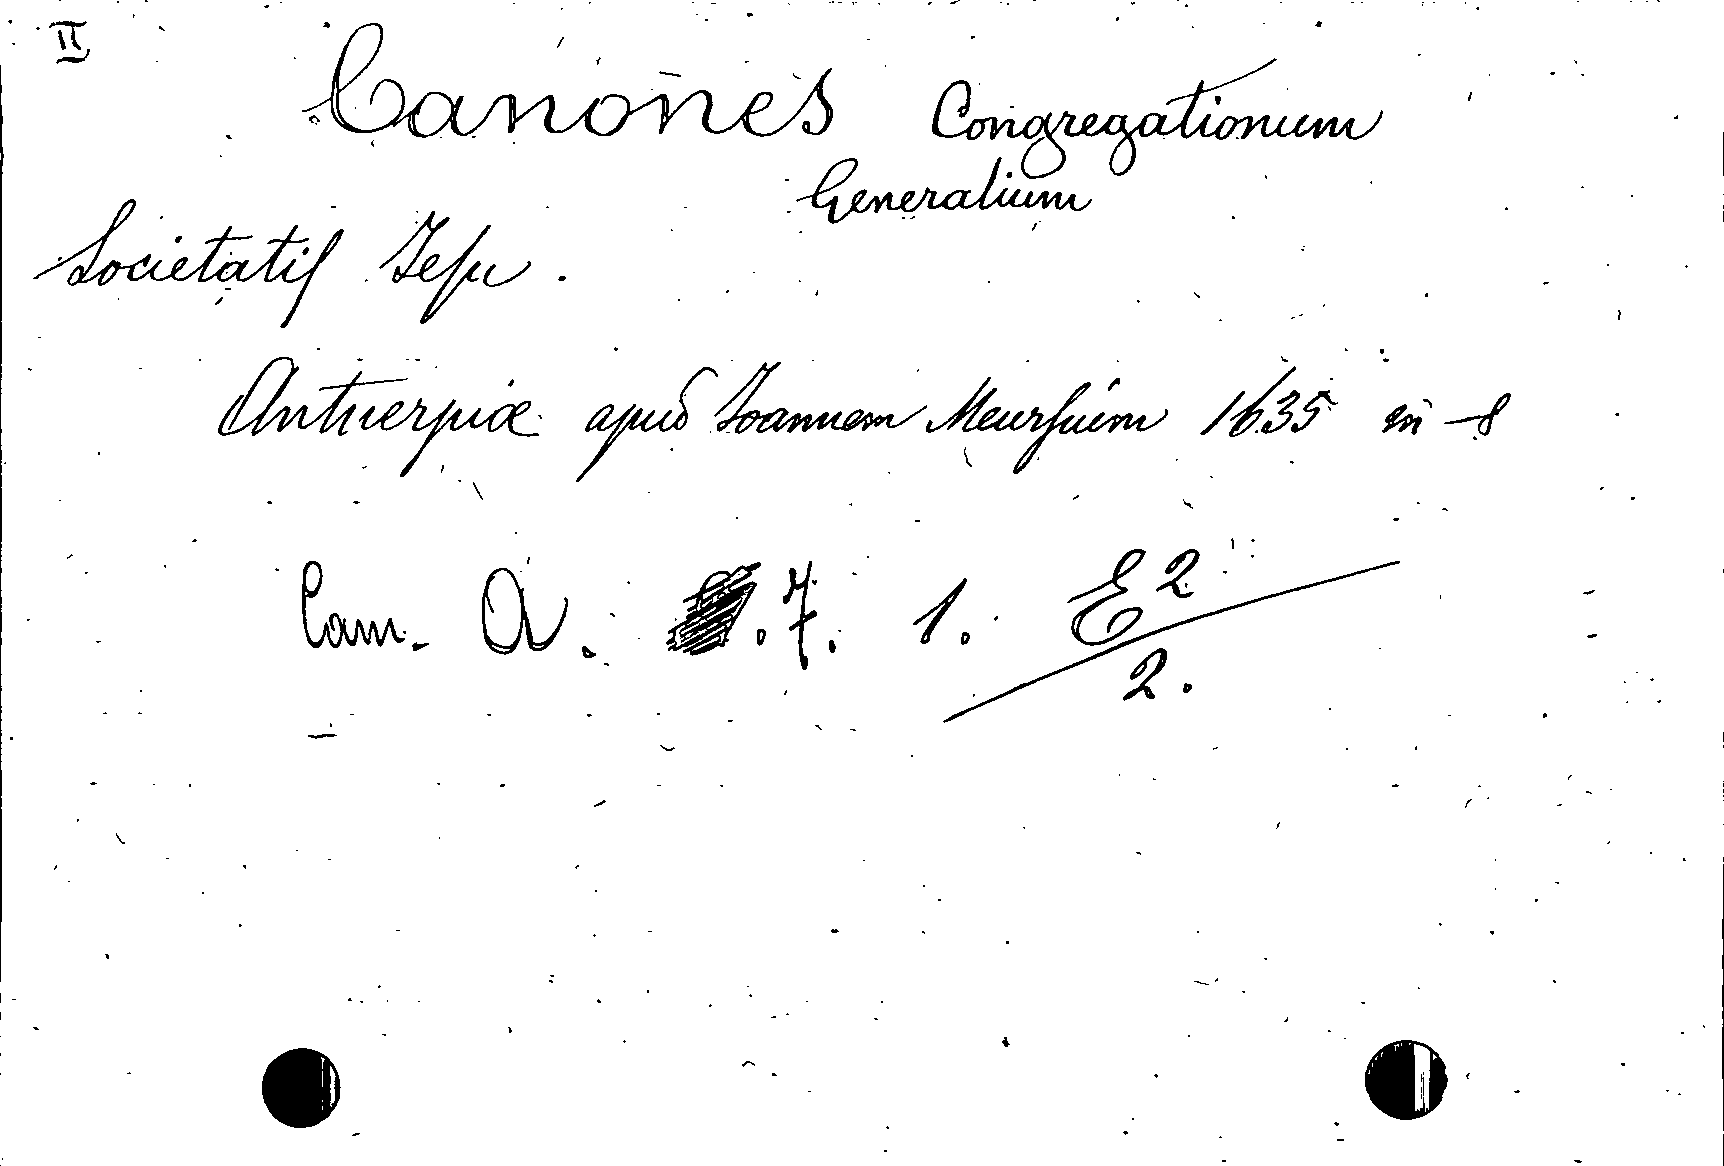 II
Canones Congregationum
Generalium
Societatis Iesu.
Antuerpiæ apud Ioannem Meursium 1635 in-8
Cam. A. 7. 1. E2
2.